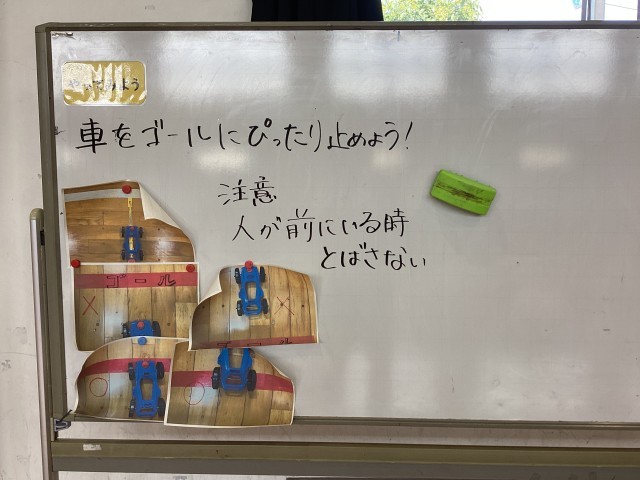 車をゴールにぴったり止めよう!
注意
人が前にいる時
とばさない
ゴール